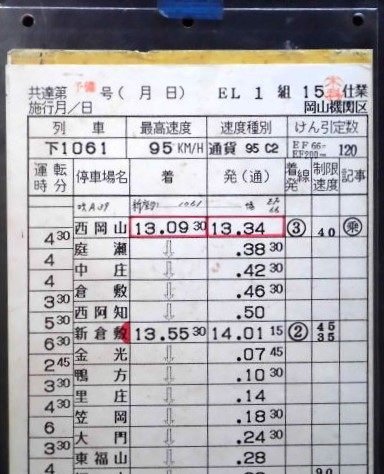 予備
共達第 号( 月 日) EL 1 組 15 仕業
施行月/日 岡山機関区
列車 最高速度 速度種別 けん引定数
下1061 95 KM/H 通貨 95 C2 EF66= EF200= 120
運転時分 停車場名 着 発(通) 着発線 制限速度 記事
1061
西岡山 13.09 30 13.34 ③ 40 乗
4 30
庭瀬 ⇩ .38 30
4
中庄 ⇩ .42 30
4
倉敷 ⇩ .46 30
3 30
西阿知 ⇩ .50
5 30
新倉敷 13.55 30 14.01 15 ② 45 35
6 30
金光 ⇩ .07 45
2 45
鴨方 ⇩ .10 30
3 30
里庄 ⇩ .14
4 30
笠岡 ⇩ .18 30
6
大門 ⇩ .24 30
3 30
東福山 ⇩ .28